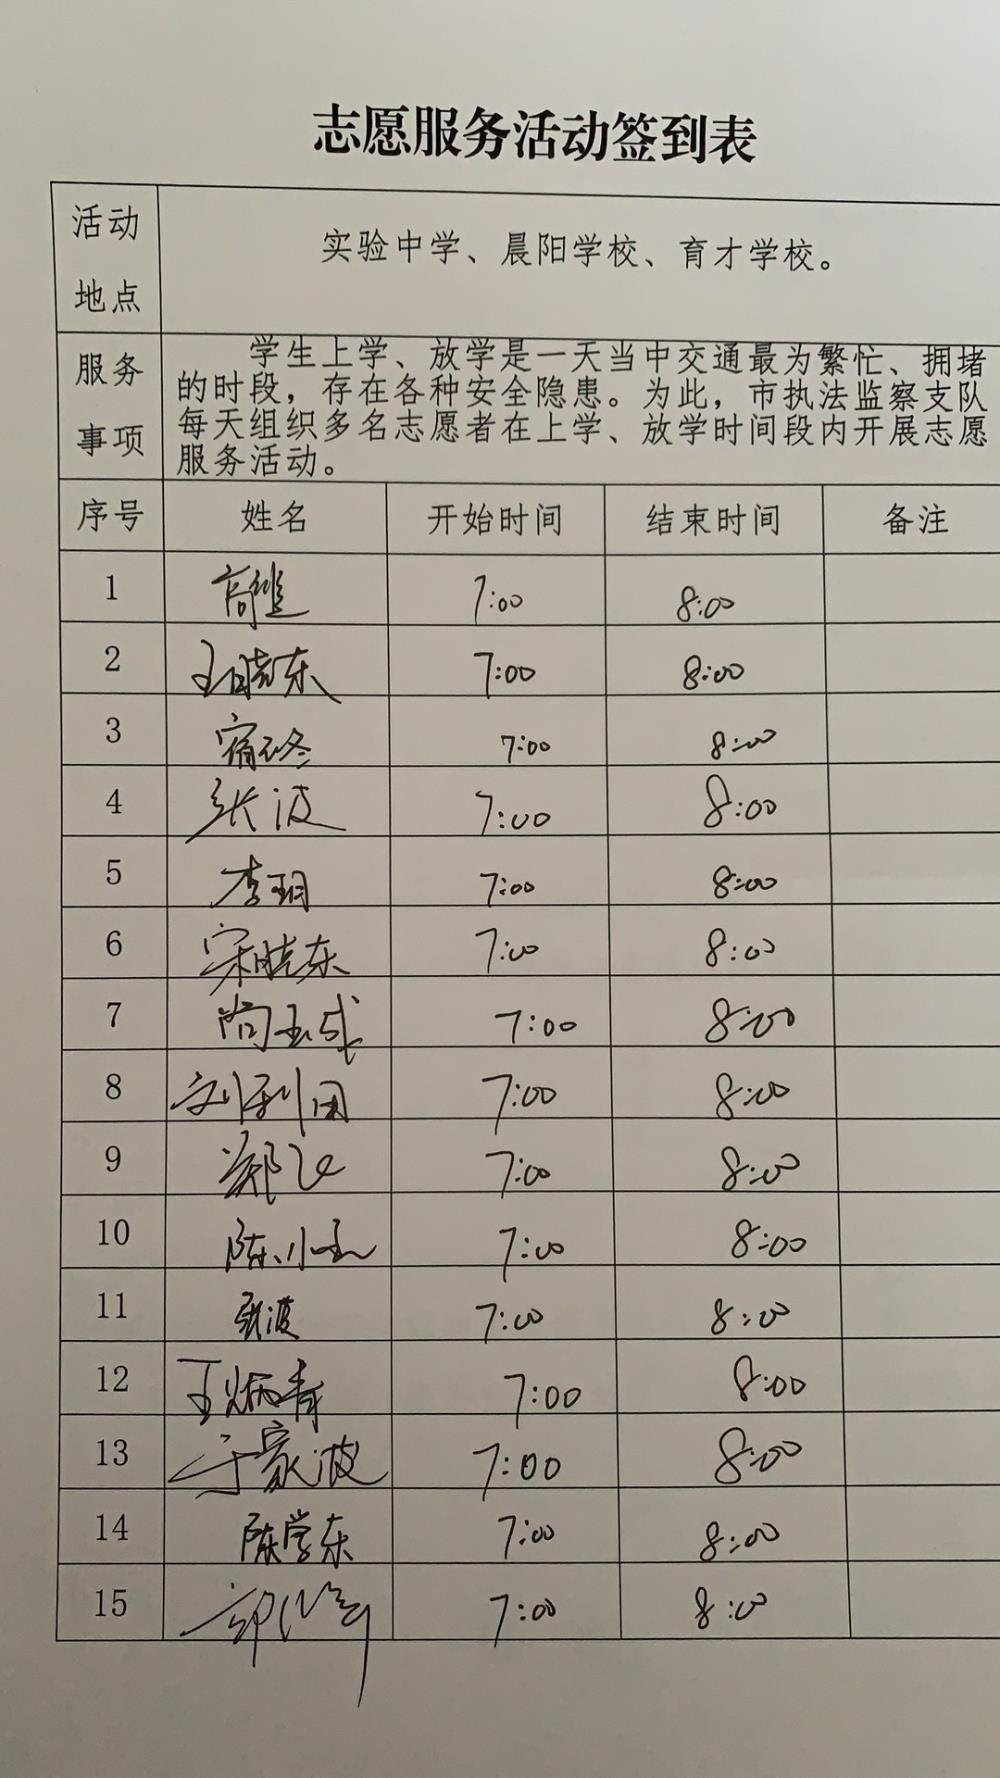 志愿服务活动签到表
活动
地点
实验中学、晨阳学校、育才学校。
服务
事项
学生上学、放学是一天当中交通最为繁忙、拥堵
的时段，存在各种安全隐患。为此，市执法监察支队
每天组织多名志愿者在上学、放学时间段内开展志愿
服务活动。
序号 姓名 开始时间 结束时间 备注
1 高 7:00 8:00
2 王晓东 7:00 8:00
3 7:00 8:00
4 张波 7:00 8:00
5 李玥 7:00 8:00
6 宋晓东 7:00 8:00
7 尚玉成 7:00 8:00
8 刘利国 7:00 8:00
9 郑飞 7:00 8:00
10 陈小 7:00 8:00
11 张波 7:00 8:00
12 王炳青 7:00 8:00
13 于家波 7:00 8:00
14 陈学东 7:00 8:00
15 7:00 8:00